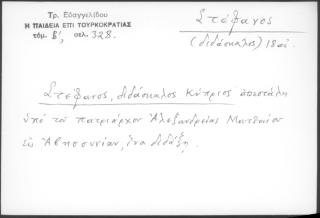 Τρ. Εὐαγγελίδου
Η ΠΑΙΔΕΙΑ ΕΠΙ ΤΟΥΡΚΟΚΡΑΤΙΑΣ
τόμ. Β', σελ. 328.
Στέφανος
(διδάσκαλος) 18 αἰ.
Στέφανος, διδάσκαλος Κύπριος ἀπεστάλη
ὑπὸ τοῦ πατριάρχου Ἀλεξανδρείας Ματθαίου
Ἀβησσυνίαν, ἵνα διδάξῃ.